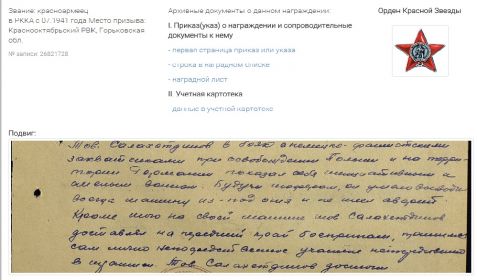 Звание: красноармеец
в РККА с 07.1941 года Место призыва:
Краснооктябрьский РВК, Горьковская
обл.
№ записи: 26821728
Архивные документы о данном награждении:
I. Приказ(указ) о награждении и сопроводительные
документы к нему
- первая страница приказ или указа
- строка в наградном списке
- наградной лист
II. Учетная картотека
- данные в учетной картотеке
Орден Красной Звезды
Подвиг:
Тов. Салахетдинов в боях с немецко-фашистскими
захватчиками при освобождении Польши и на терри-
тории Германии показал себя
смелым воином. Будучи шофером, он умело выводил
машину из-под огня и не имел аварий
Кроме того на своей машине тов Салахетдинов
доставлял на передний край боеприпасы,
сам лично непосредственно участие
Тов. Салахетдинов достоин